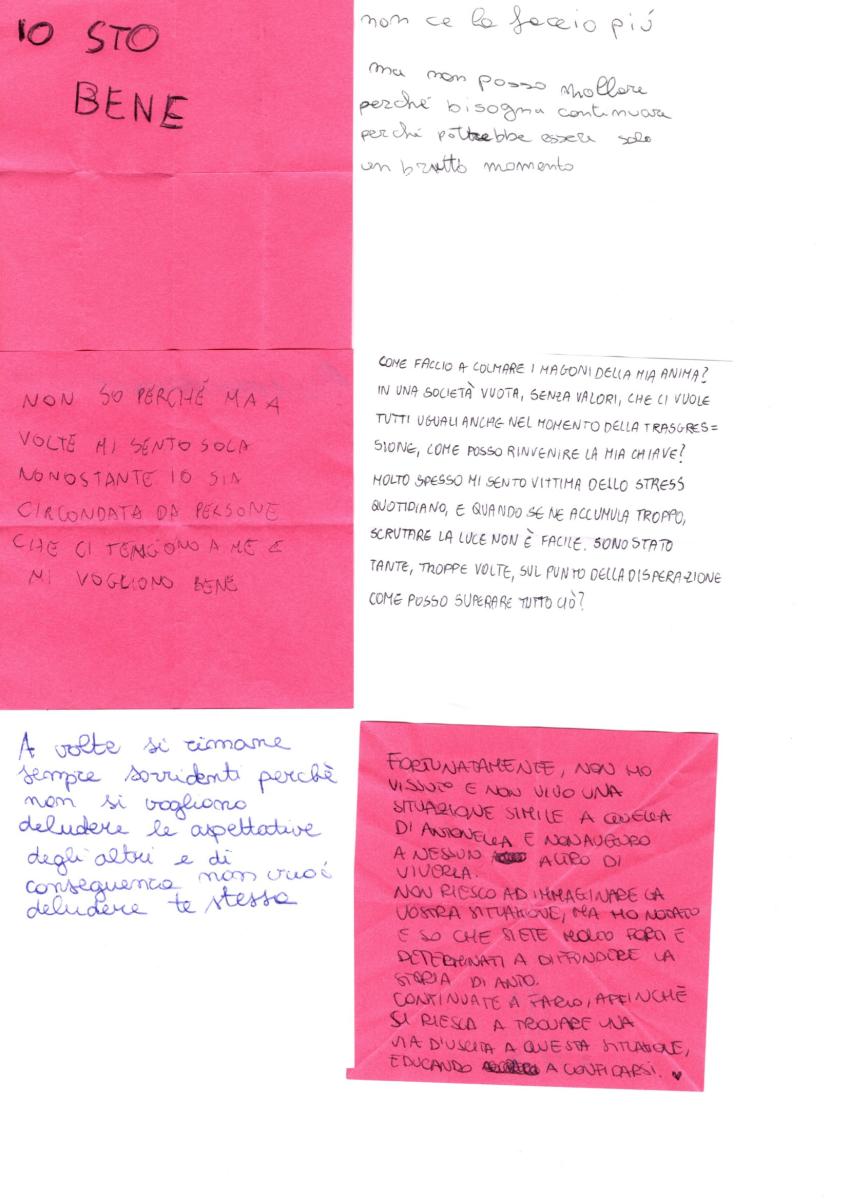 IO STO
BENE
non ce la faccio più
ma non posso mollare
perché bisogna continuare
perché potrebbe essere solo
un brutto momento
NON SO PERCHÉ MA A
VOLTE MI SENTO SOLA
NONOSTANTE IO SIA
CIRCONDATA DA PERSONE
CHE CI TENGONO A ME E
MI VOGLIONO BENE
COME FACCIO A COLMARE I MAGONI DELLA MIA ANIMA?
IN UNA SOCIETÀ VUOTA, SENZA VALORI, CHE CI VUOLE
TUTTI UGUALI ANCHE NEL MOMENTO DELLA TRASGRES=
SIONE, COME POSSO RINVENIRE LA MIA CHIAVE?
MOLTO SPESSO MI SENTO VITTIMA DELLO STRESS
QUOTIDIANO, E QUANDO SE NE ACCUMULA TROPPO,
SCRUTARE LA LUCE NON È FACILE. SONO STATO
TANTE, TROPPE VOLTE, SUL PUNTO DELLA DISPERAZIONE
COME POSSO SUPERARE TUTTO CIÒ?
A volte si rimane
sempre sorridenti perchè
non si vogliono
deludere le aspettative
degli altri e di
conseguenza non vuoi
deludere te stessa
FORTUNATAMENTE, NON HO
VISSUTO E NON VIVO UNA
SITUAZIONE SIMILE A QUELLA
DI ANTONELLA E NON AUGURO
A NESSUN ALTRO DI
VIVERLA.
NON RIESCO AD IMMAGINARE LA
VOSTRA SITUAZIONE, MA HO NOTATO
E SO CHE SIETE MOLTO FORTI E
DETERMINATI A DIFFONDERE LA
STORIA DI ANTO.
CONTINUATE A FARLO, AFFINCHÈ
SI RIESCA A TROVARE UNA
VIA D'USCITA A QUESTA SITUAZIONE,
EDUCANDO A CONFIDARSI. ♥